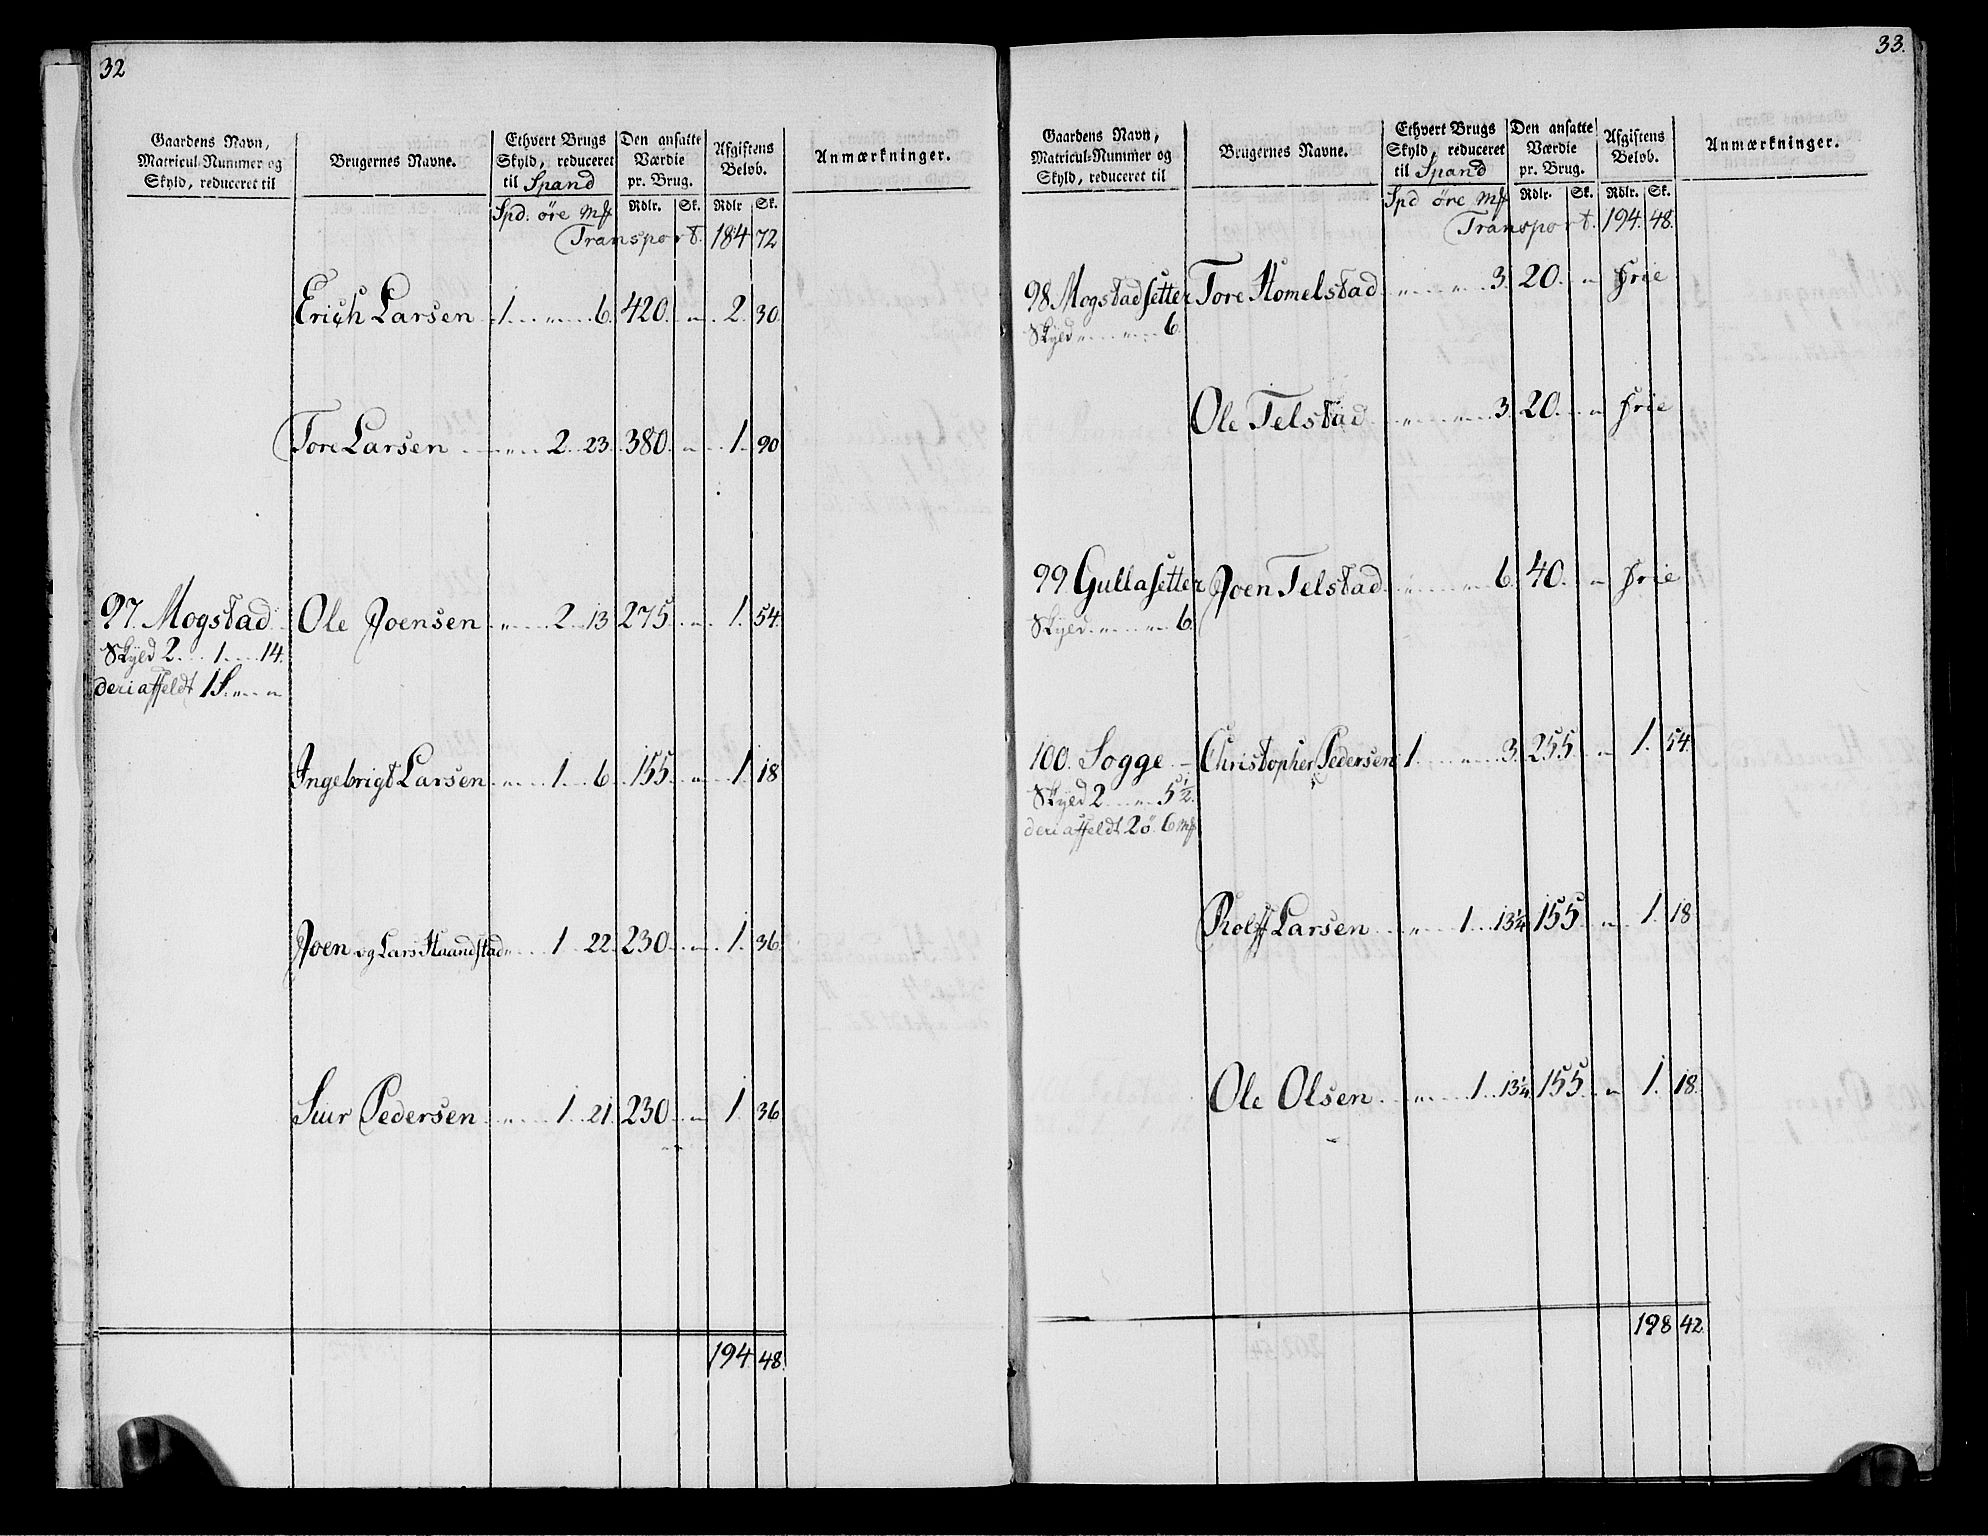 32
Gaardens Navn,
Matricul-Nummer og
Skyld, reduceret til
Brugernes Navne.
Ethvert Brugs
Skyld, reduceret
til Spand
Den ansatte
Værdie
pr. Brug.
Afgiftens
Beløb.
Anmærkninger.
Spd: öre mk Rdlr. Sk. Rdlr Sk.
Transport. 184 72
Erich Larsen 1 " 6. 420. " 2. 30.
Tore Larsen " 2 23. 380. " 1. 90
97. Mogstad Ole Joensen " 2 13 275. " 1. 54.
Skyld 2 1 14.
deri affeldt 1 S. " "
Ingebrigt Larsen " 1 6. 155. " 1. 18
Joen og Lars Haandstad " 1 22. 230. " 1. 36.
Siur Pedersen " 1 21. 230. " 1. 36
194 48.
33.
Gaardens Navn,
Matricul-Nummer og
Skyld, reduceret til
Brugernes Navne.
Ethvert Brugs
Skyld, reduceret
til Spand
Den ansatte
Værdie
pr. Brug.
Afgiftens
Beløb.
Anmærkninger.
Spd öre mk Rdlr. Sk. Rdlr. Sk.
Transport. 194. 48.
98 Mogstadsetter Tore Homelstad " " 3. 20. " frie
Skyld " " 6.
Ole Telstad " " 3. 20. " frie
99 Gullasetter Joen Telstad " " 6. 40. " frie
Skyld " " 6.
100. Sogge Christopher Pedersen 1. " 3. 255. " 1. 54.
Skyld 2 " 5 1/2.
deri affeldt 2 ö. 6 mk
Rolff Larsen " 1. 13 1/4 155. " 1. 18
Ole Olsen " 1. 13 1/4 155. " 1. 18.
198 42